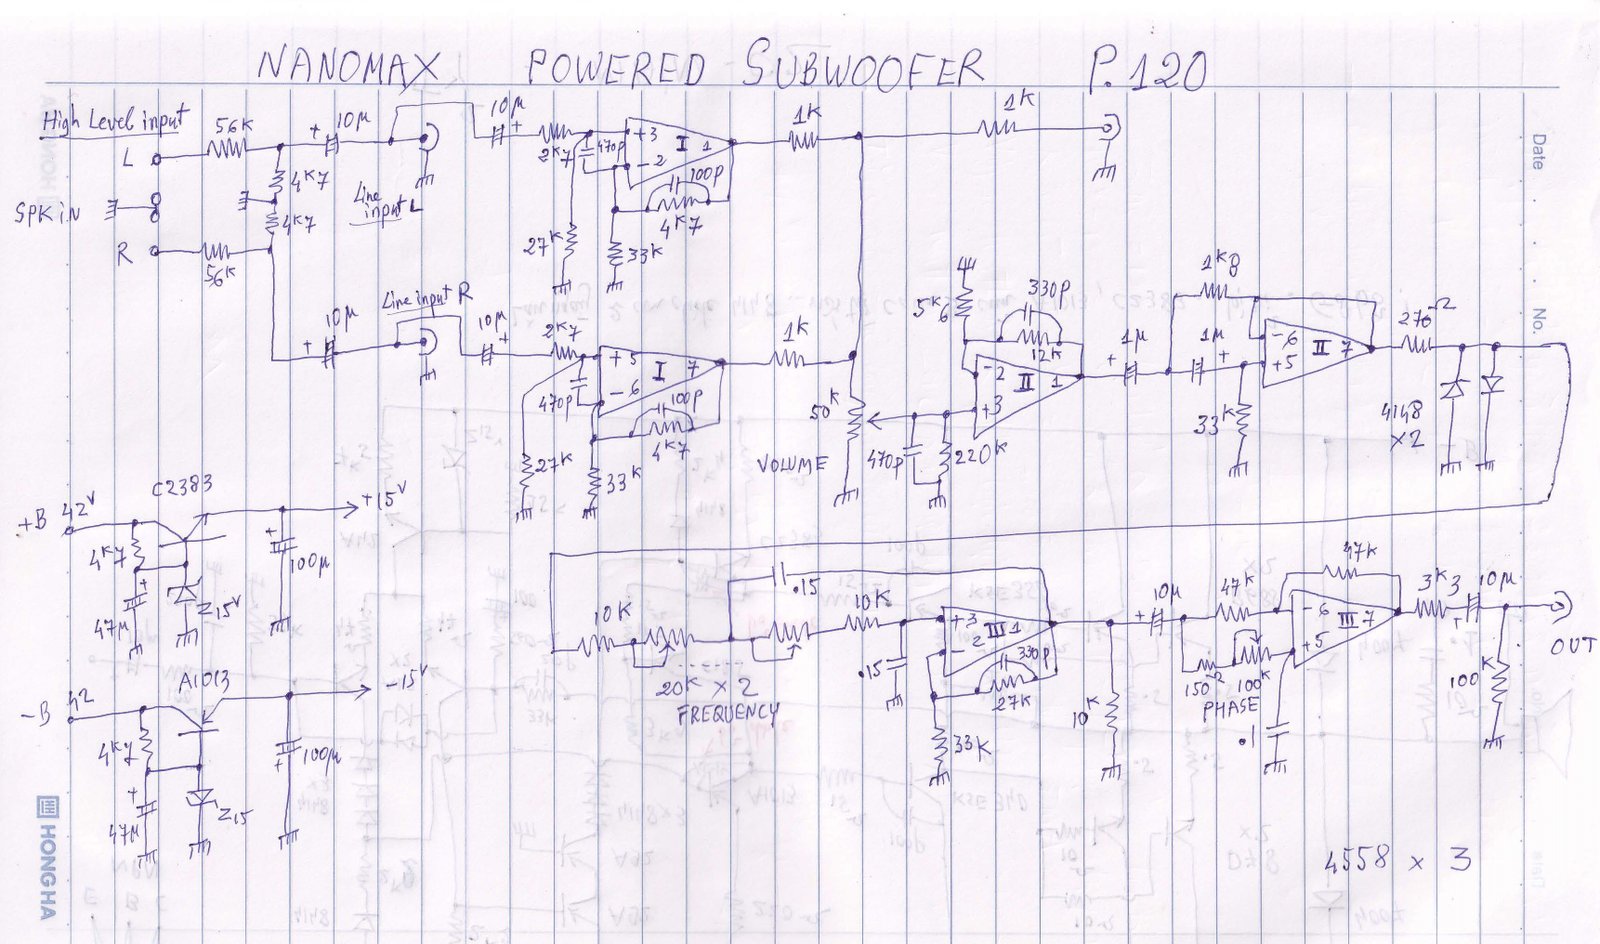 NANOMAX POWERED SUBWOOFER P.120
High Level input
L
56K
10µ
4K7
4K7
SPK iN
R
56K
Line input L
10µ
2K7
470p
+3
-2
I
1
100p
4K7
27K
33K
1K
1K
10µ
Line input R
10µ
2K7
470p
+5
-6
I
7
100p
4K7
27K
33K
1K
50K
VOLUME
470p
220K
5K6
330p
12K
-2
+3
II
1
1µ
1µ
1K8
33K
-6
+5
II
7
270Ω
4148
x2
+B 42V
C2383
+15V
4K7
47µ
Z15V
100µ
-B 42
A1013
-15V
4K7
47µ
Z15
100µ
10K
20K x 2
FREQUENCY
.15
10K
.15
+3
-2
III
1
330p
27K
33K
10K
10µ
47K
47K
150Ω
100K
PHASE
.1
-6
+5
III
7
3K3
10µ
100K
OUT
4558 x 3
Date
No.
HONG HA